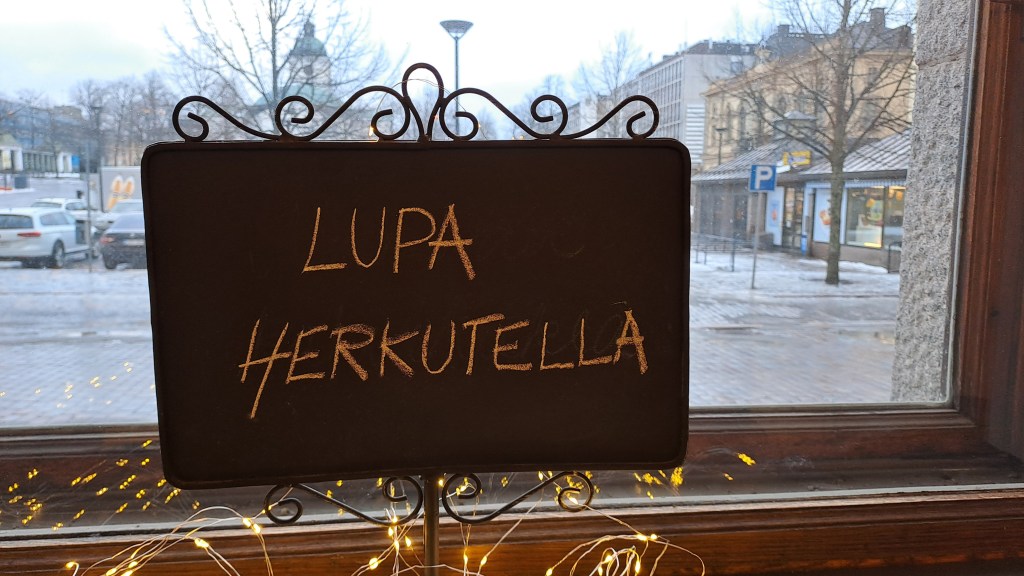 LUPA
HERKUTELLA
P